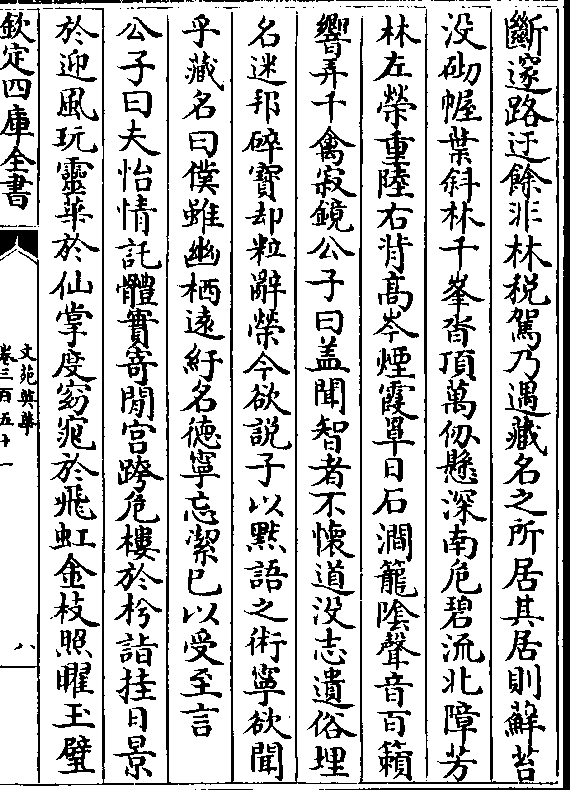 斷邃路迂餘非林税駕乃遇藏名之所居其居則蘚苔
没砌幄葉斜林千峯沓頂萬仞懸深南危碧流北障芳
林左榮重陸右背髙岑煙霞單日石澗籠陰聲音百籟
響弄千禽寂鏡公子曰盖聞智者不懐道没志遺俗埋
名迷邦碎寳却粒辭榮今欲説子以黙語之術寧欲聞
乎藏名曰僕雖幽栖逺紆名徳寧忘潔已以受至言
公子曰夫怡情託體實寄閒宫跨危樓於枍詣挂日景
於迎風玩靈華於仙掌度窈窕於飛虹金枝照曜玉璧
欽定四庫全書
文苑英華
卷三百五十一
八